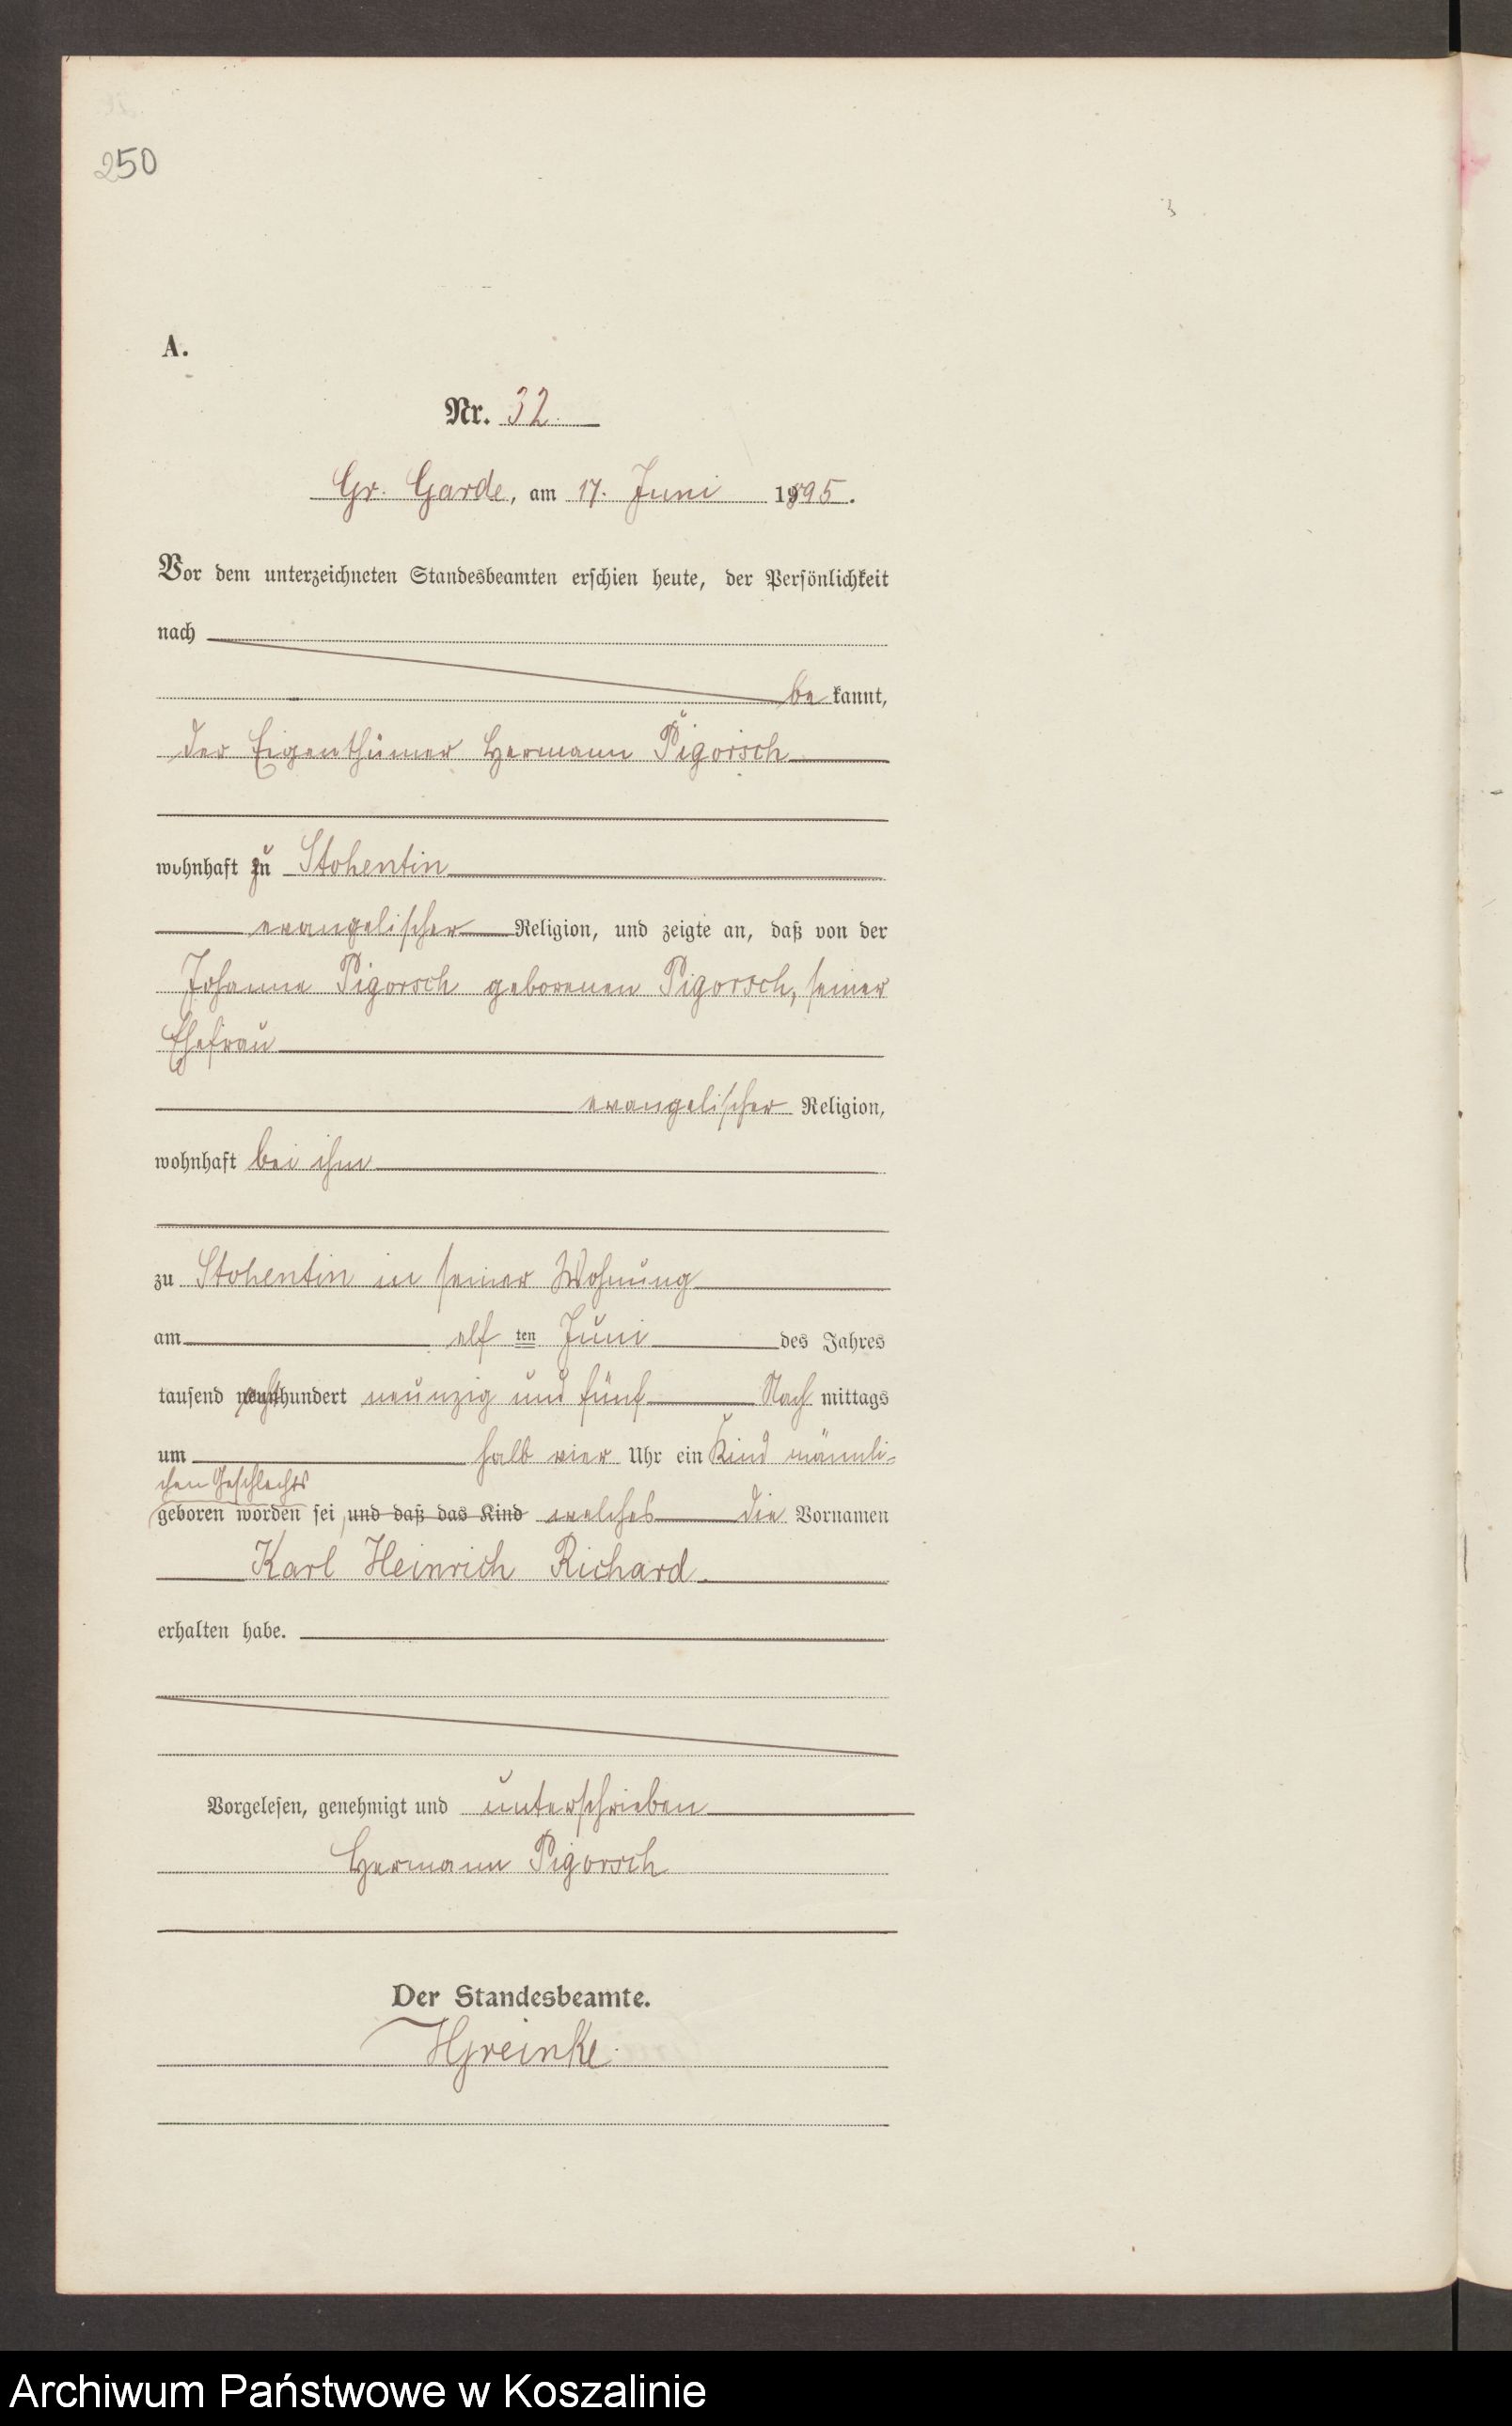 250
A.
Nr. 32.
Gr. Garde, am 17. Juni 1895.
Vor dem unterzeichneten Standesbeamten erschien heute, der Persönlichkeit
nach
be kannt,
der Eigenthümer Hermann Pigorsch
wohnhaft zu Stohentin
evangelischer Religion, und zeigte an, daß von der
Johanne Pigorsch geborenen Pigorsch, seiner
Ehefrau
evangelischer Religion,
wohnhaft bei ihm
zu Stohentin in seiner Wohnung
am elf ten Juni des Jahres
tausend achthundert neunzig und fünf Nach mittags
um halb vier Uhr ein Kind männli-
chen Geschlechts
geboren worden sei, und daß das Kind welches die Vornamen
Karl Heinrich Richard
erhalten habe.
Vorgelesen, genehmigt und unterschrieben
Hermann Pigorsch
Der Standesbeamte.
HGreinke.
Archiwum Państwowe w Koszalinie